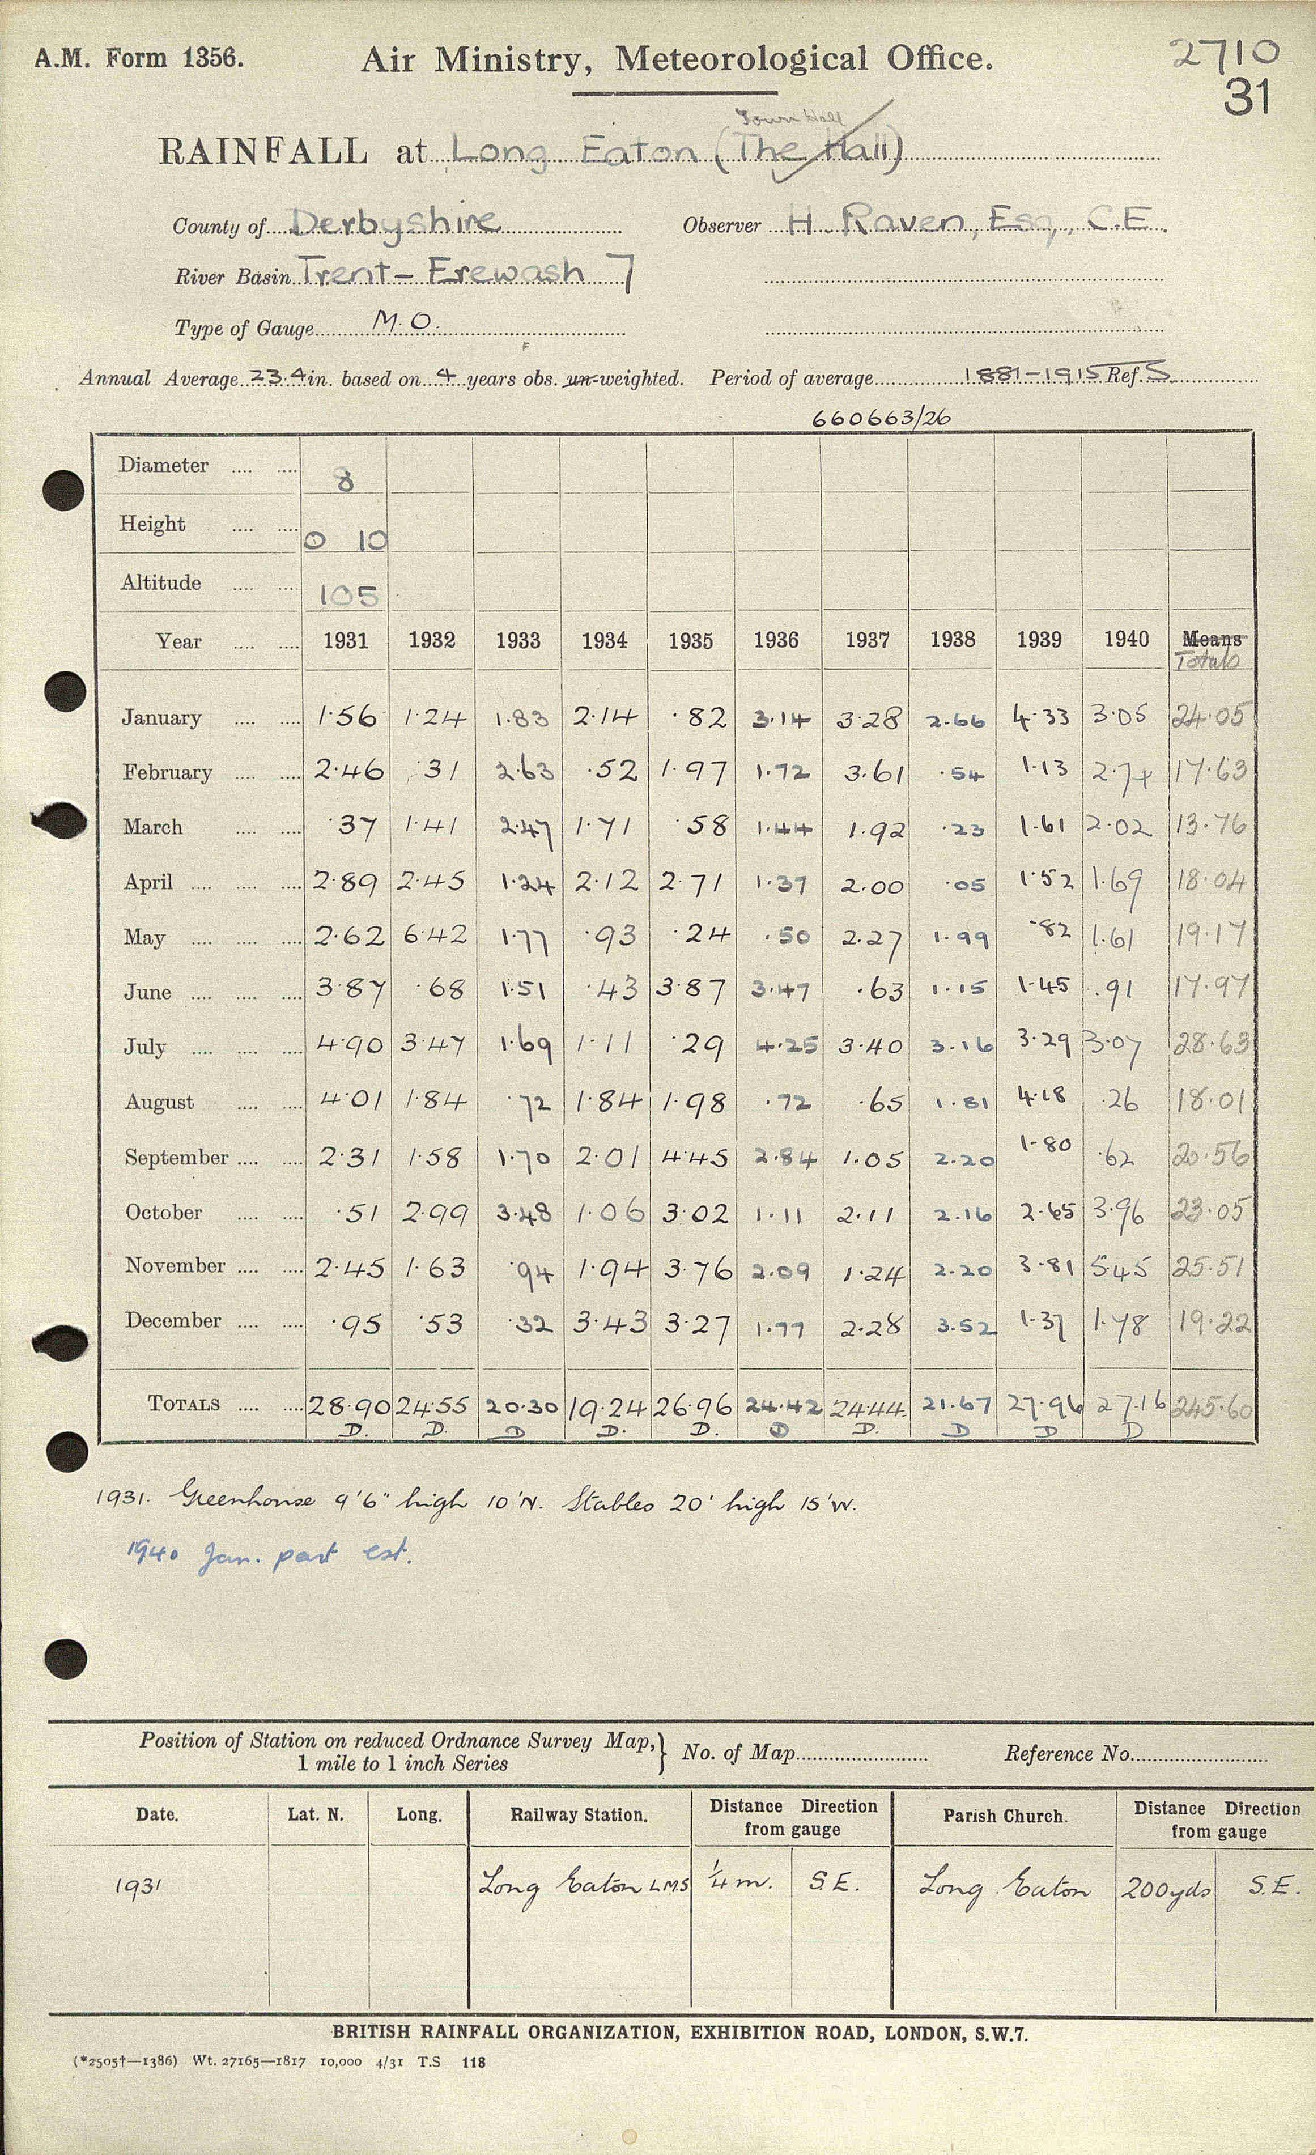 A.M. Form 1356. Air Ministry, Meteorological Office. 2710
31
Town Hall
RAINFALL at Long Eaton (The Hall)
County of Derbyshire Observer H. Raven, Esq., C.E.
River Basin Trent - Erewash 7
Type of Gauge M.O.
Annual Average 23.4 in. based on 4 years obs. un-weighted. Period of average 1881-1915 Ref. S
660663/26
Diameter .... .... 8
Height .... .... 0 10
Altitude .... .... 105
Year .... .... 1931 1932 1933 1934 1935 1936 1937 1938 1939 1940 Means
Totals
January .... .... 1.56 1.24 1.83 2.14 .82 3.14 3.28 2.66 4.33 3.05 24.05
February .... .... 2.46 .31 2.63 .52 1.97 1.72 3.61 .54 1.13 2.74 17.63
March .... .... .37 1.41 2.47 1.71 .58 1.44 1.92 .23 1.61 2.02 13.76
April .... .... .... 2.89 2.45 1.24 2.12 2.71 1.37 2.00 .05 1.52 1.69 18.04
May .... .... .... 2.62 6.42 1.77 .93 .24 .50 2.27 1.99 .82 1.61 19.17
June .... .... .... 3.87 .68 1.51 .43 3.87 3.47 .63 1.15 1.45 .91 17.97
July .... .... .... 4.90 3.47 1.69 1.11 .29 4.25 3.40 3.16 3.29 3.07 28.63
August .... .... 4.01 1.84 .72 1.84 1.98 .72 .65 1.81 4.18 .26 18.01
September .... .... 2.31 1.58 1.70 2.01 4.45 2.84 1.05 2.20 1.80 .62 20.56
October .... .... .51 2.99 3.48 1.06 3.02 1.11 2.11 2.16 2.65 3.96 23.05
November .... .... 2.45 1.63 .94 1.94 3.76 2.09 1.24 2.20 3.81 5.45 25.51
December .... .... .95 .53 .32 3.43 3.27 1.77 2.28 3.52 1.37 1.78 19.22
TOTALS .... .... 28.90 24.55 20.30 19.24 26.96 24.42 24.44 21.67 27.96 27.16 245.60
D. D. D D. D. D D. D D D
1931. Greenhouse 9'6" high 10'N. Stables 20' high 15'W.
1940 Jan. part est.
Position of Station on reduced Ordnance Survey Map,} No. of Map.................... Reference No....................
1 mile to 1 inch Series
Date. Lat. N. Long. Railway Station. Distance Direction from gauge Parish Church. Distance Direction from gauge
1931 Long Eaton LMS 1/4 m. S.E. Long Eaton 200yds S.E.
BRITISH RAINFALL ORGANIZATION, EXHIBITION ROAD, LONDON, S.W.7.
(*2505†—1386) Wt. 27165—1817 10,000 4/31 T.S 118